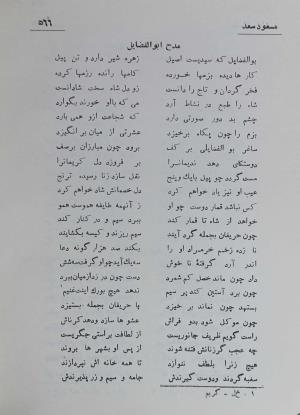 مسعود سعد
۵۶۶
مدح ابوالفضایل
بوالفضایل که سیدیست اصیل زهره شیر دارد و تن پیل
کارها دیده بزمها خورده کامها رانده رزمها کرده
فخر گردان و تاج رادانست زو دل شاه سخت شادانست
شاه را طبع در نشاط آرد می که با او خورند بگوارد
چشم بد دور صورتی دارد که شجاعت ازو همی بارد
بزم را چون پگاه برخیزد عشرتی از میان برانگیزد
ساغر بوالفضایلی بر کف برود چون مبارزان برصف
دوستکانی دهد ندیمانرا بر فروزد دل کریمانرا
مست گردد چو پیل بایک وپنج نقل سازد زنا رسیده ترنج
عیب او نیز یاد خواهم کرد دل خصمانش شاد خواهم کرد
کس نباشد قمار دوست چو او ز آنهمه طایفه هموست همو
خواهد از شاه تا قمار کند ببرد سیم و در کنار کند
چون حریفان بجمله گرد آیند سیم ریزند و کیسه بگشایند
نا زده زخم خرمراد او را بکند صد هزار گونه دعا
اندر آرد گرفتهٔ نا خوش
داد چون ماند خصل کم شمرد دست چون در زد ازمیان ببرد
چون برد آستین کند پر سیم ندهد هیچ
بستهد چون نماند بر خیزد با حریفان بجمله بستیزد
چون موکل شود بدو فراش عشوها سازد ودهد کرناش
راست گویم ظریف جانوریست از لطافت براستی جگریست
چه عجب گرزنانش فتنه شوند از پس او بشهر ها بروند
هیچ زنرا بلطف ننوازد تا همه خانه اش نپردازد
سغبه گردند ودوست گیرندش جامه و سیم و زر پذیرندش
۱ - کریم